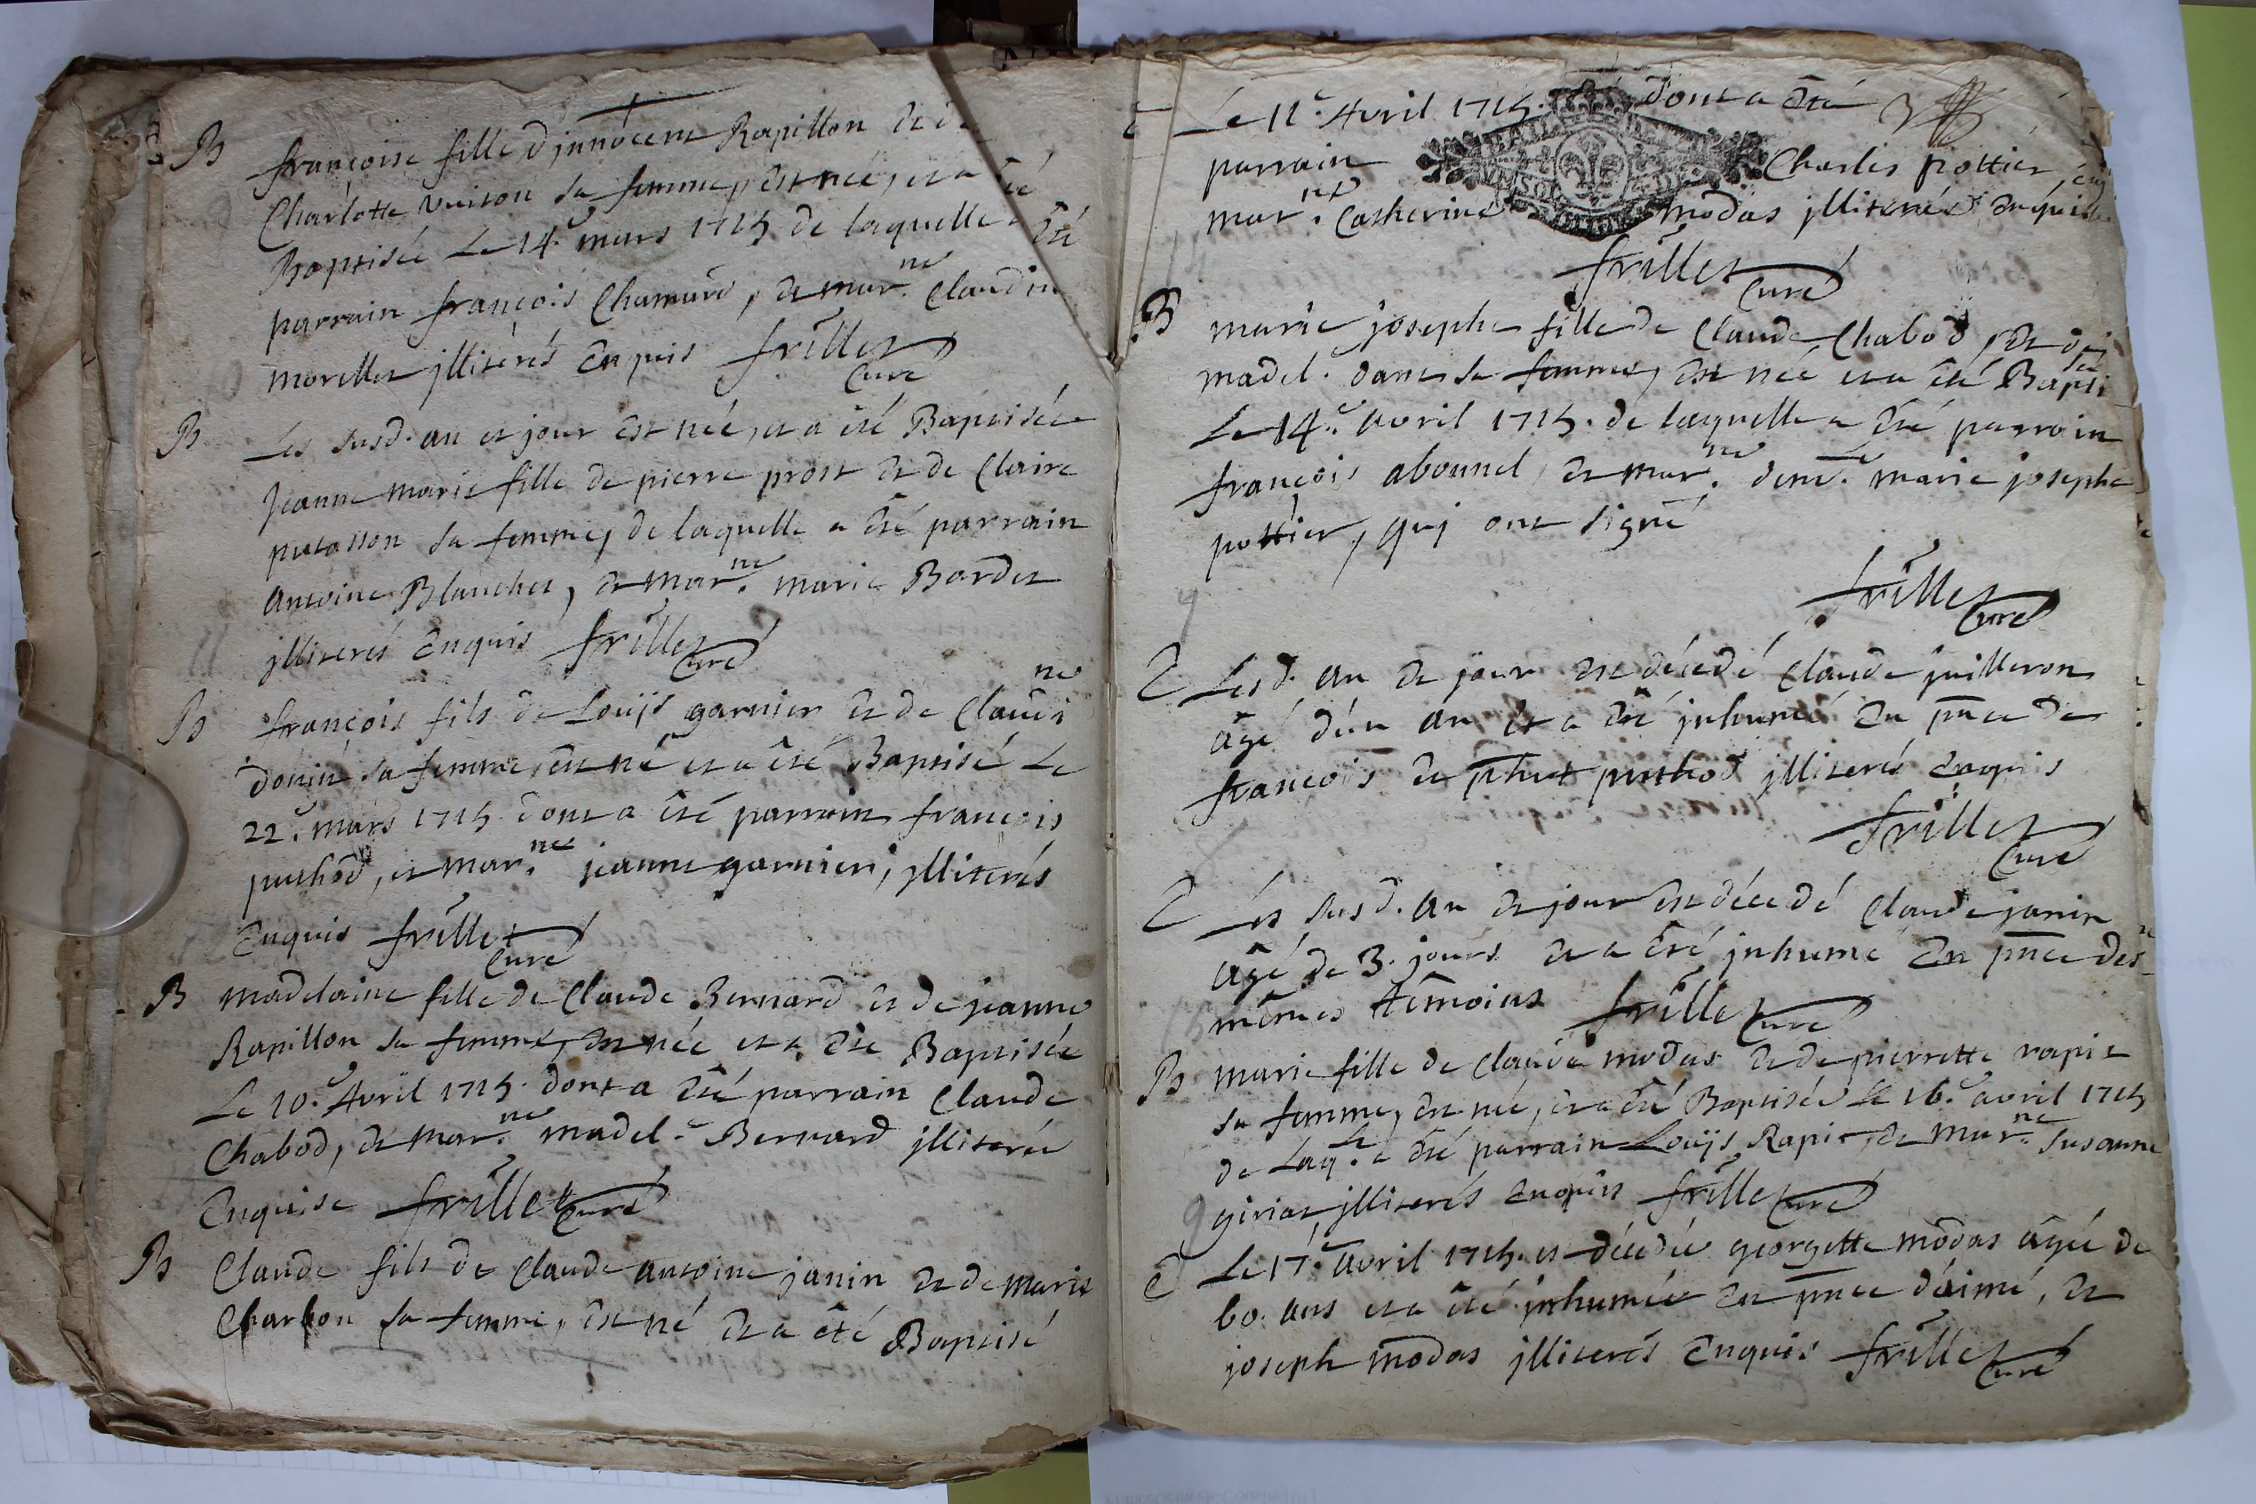 B
françoise fille d'jnnocent Rapillon et de
Charlotte vuiton sa femme, est née, et a été
Baptisée Le 14e. mars 1715 de laquelle a été
parrain françois Chanard, et marne. Claudin
morellet jlliterés enquis frillet
Curé
B
Les susd. an et jour est née, et a été Baptisée
Jeanne marie fille de pierre prost et de Claire
putasson sa femme, de laquelle a été parrain
Antoine Blanchet, et marne. marie Bardet
jlliterés enquis frillet
Curé
B
françois fils de Louijs garnier et de Claudine
donin sa femme, est né et a été Baptisé Le
22e. mars 1715. dont a été parrain françois
puthod, et marne. jeanne garnier, jlliterés
enquis frillet
Curé
B
madelaine fille de Claude Bernard et de jeanne
Rapillon sa femme, est née et a été Baptisée
Le 10e. Avril 1715. dont a été parrain Claude
Chabod, et marne. madel.e Bernard jlliterée
enquise frillet Curé
B
Claude fils de Claude antoine janin et de marie
Charbon sa femme, est né et a été Baptisé
Le 11e. Avril 1715. dont a été
parrain Charles pottier, et
marne. Catherine modas jlliterés enquis
frillet
Curé
B
marie josephe fille de Claude Chabod, et de
madel.e dans sa femme, est née et a été Baptisée
Le 14e. Avril 1715. de laquelle a été parrain
françois abonnel, et marne. demle. marie josephe
pottier, qui ont signé
frillet
Curé
Lesd. an et jour est décedé Claude juilleron
âgé d'un an et a été jnhumé en pnce de
françois et phert puthod jlliterés enquis
frillet
Curé
Les susd. an et jour est décedé Claude janin
âgé de 3. jours et a été jnhumé en pnce des
mêmes têmoins frillet Curé
B
marie fille de Claude modas et de pierrette rapit
sa femme, est née, et a été Baptisée le 16e. avril 1715
de Laqle. a été parrain Louijs Rapit, et marne. susanne
giriat jlliterés enquis frillet Curé
Le 17e. Avril 1715. est décedée georgette modas âgée de
60. ans et a été jnhumée en pnce d'aimé, et
joseph modas jlliterés enquis frillet
Curé